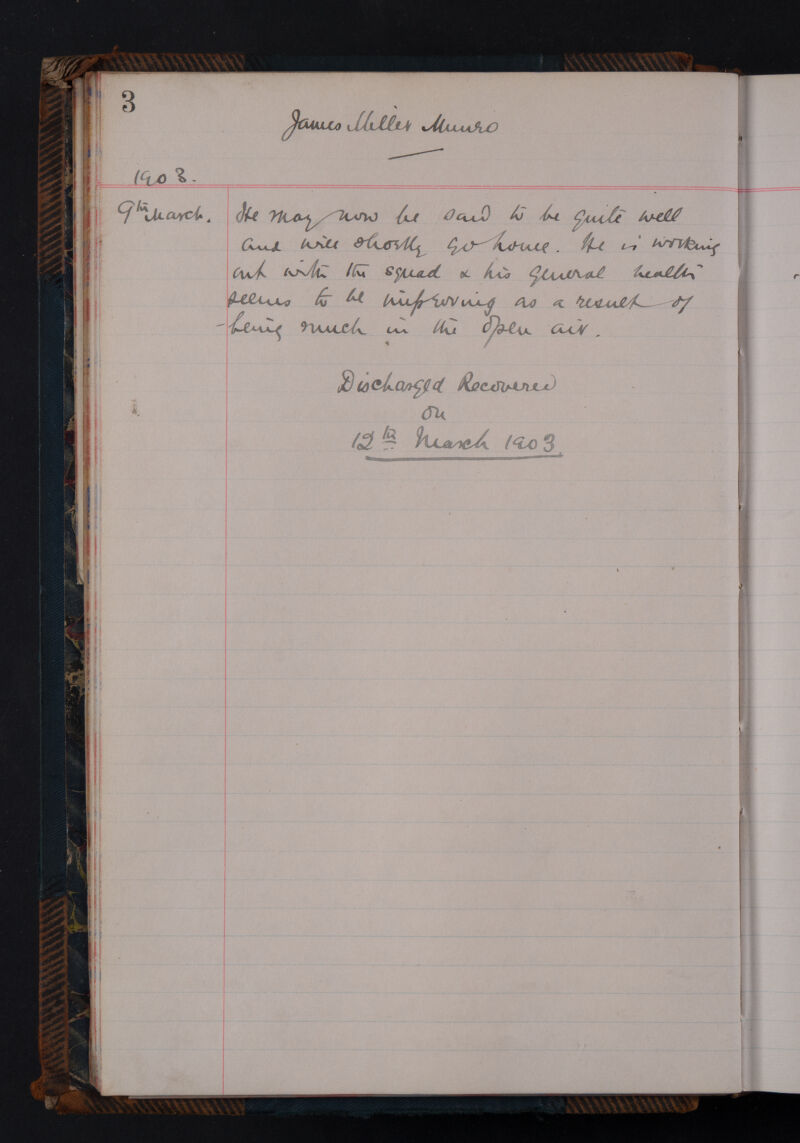 3
James Miller Munro
1903.
9th March. He may now be said to be quite well
and will shortly go home. He is working
out with the squad & his general health
seems to be improving as a result of
being much in the open air.
Discharged Recovered
on
12th March 1903.